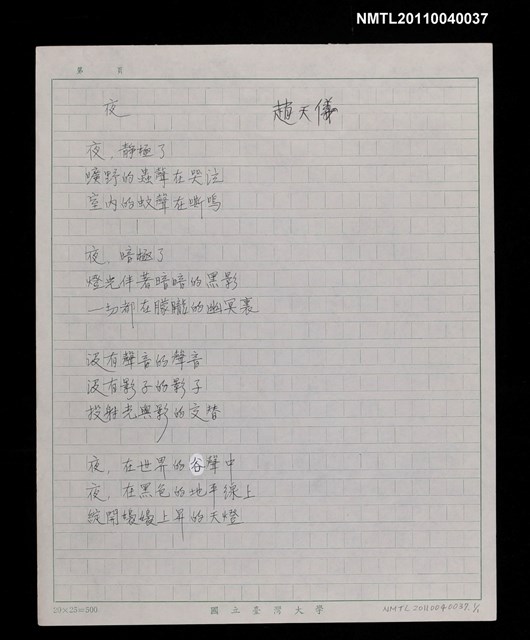 NMTL20110040037
第 頁
夜 趙天儀
夜，靜極了
曠野的蟲聲在哭泣
室內的蚊聲在嘶鳴
夜，暗極了
燈光伴著暗暗的黑影
一切都在朦朧的幽冥裏
沒有聲音的聲音
沒有影子的影子
投射光與影的交替
夜，在世界的谷聲中
夜，在黑色的地平線上
綻開熳熳上昇的天燈
20×25=500 國立臺灣大學 NMTL20110040037.1/1